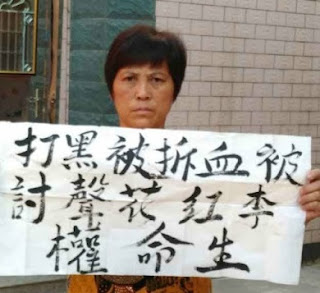 被血拆被黑打
李红花聲討
生命權